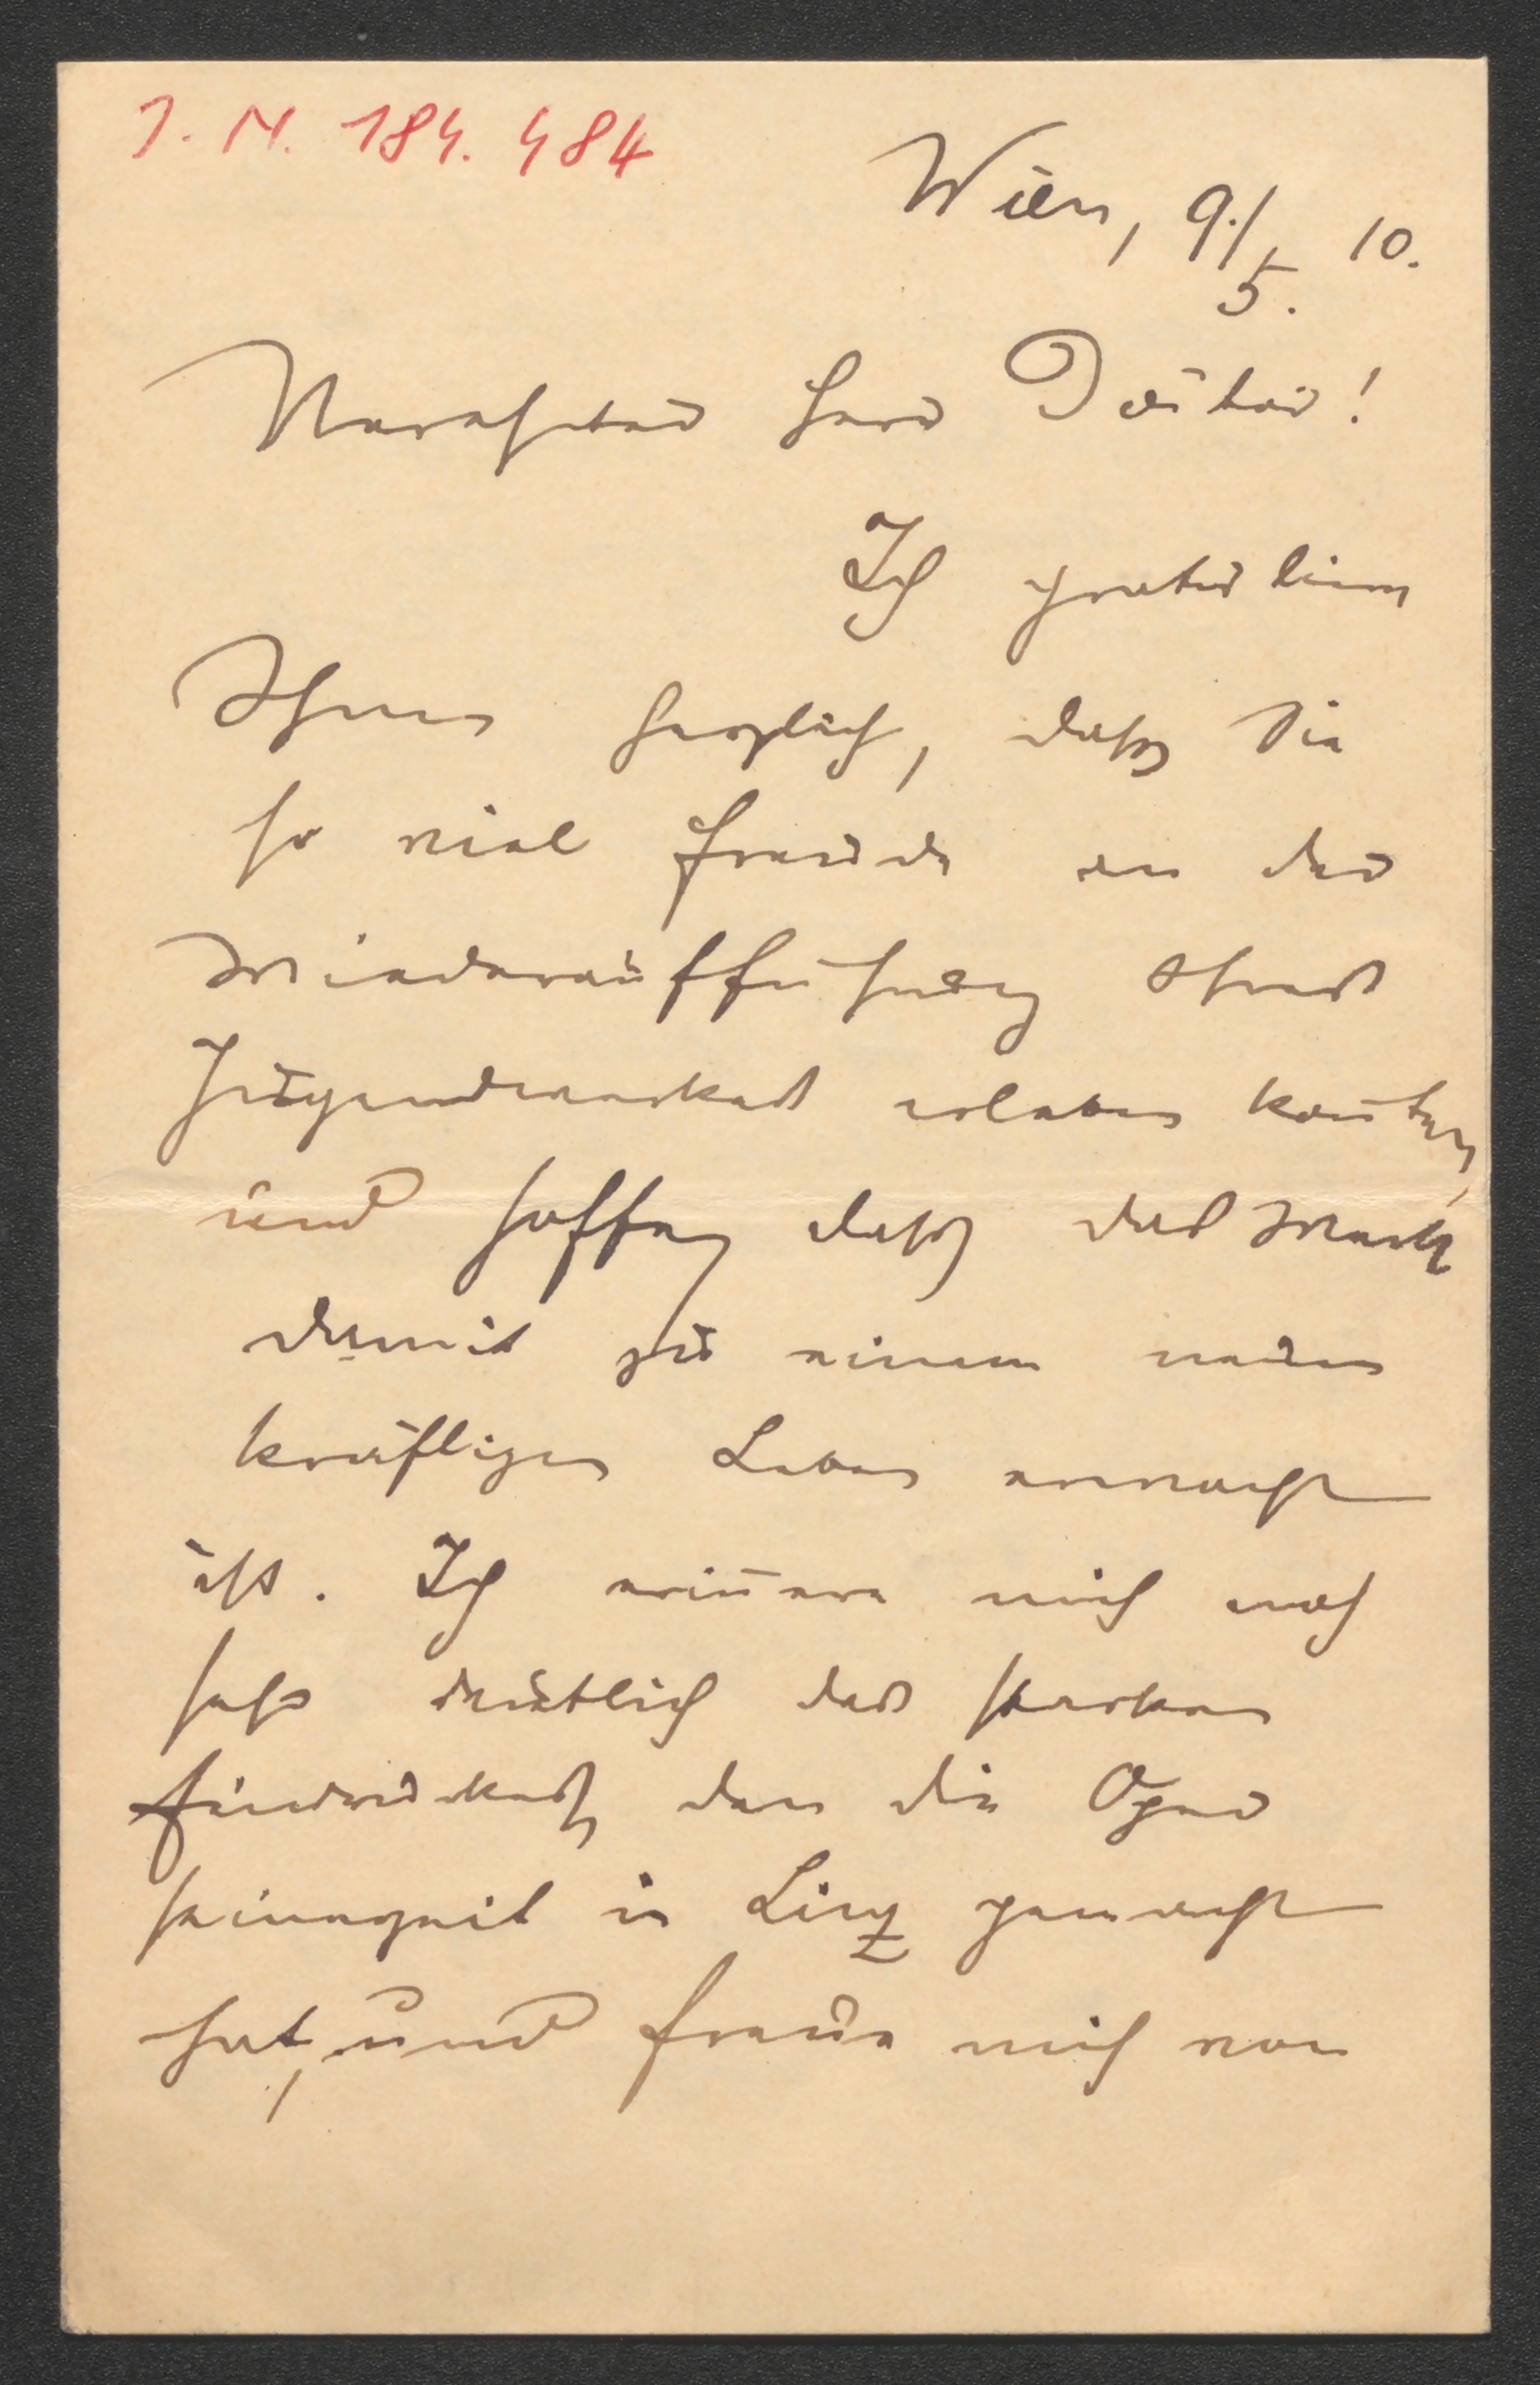 I. N. 184.484
Wien, 9./5. 10.
Verehrter Herr Doktor!
Ich gratuliere
Ihnen herzlich, daß Sie
so viel Freude an der
Wiederaufführung Ihres
Jugendwerkes erleben konnten,
und hoffe, daß das Werk
damit zu einem neuen
kräftigen Leben erwacht
ist. Ich erinnere mich noch
sehr deutlich des starken
Eindruckes, den die Oper
seinerzeit in Linz gemacht
hat, und freue mich von